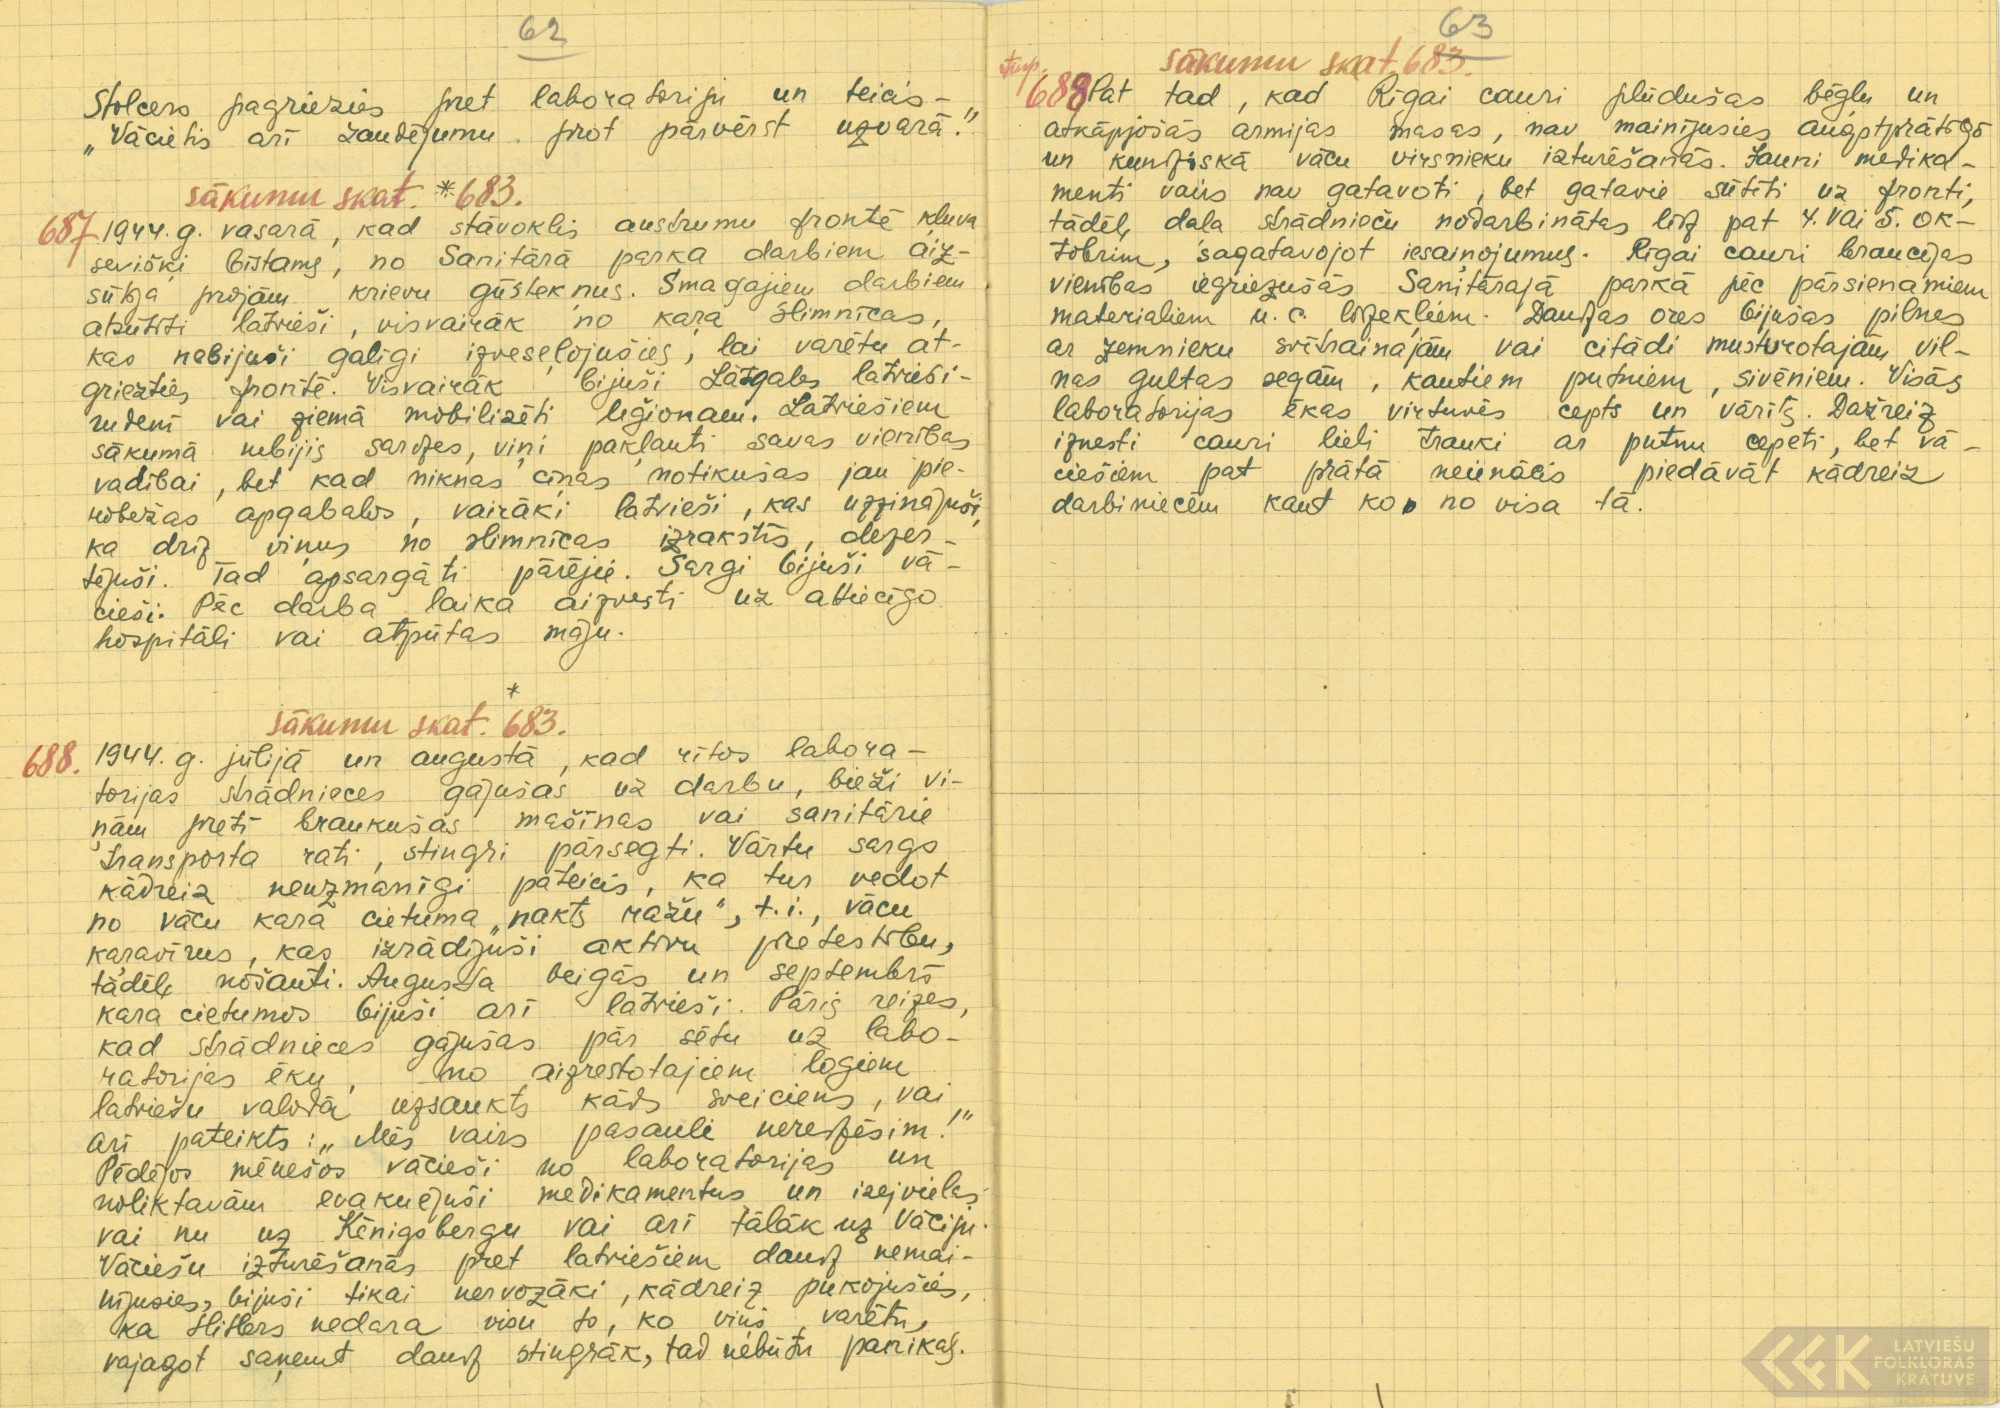 62
Stolcers pagriezies pret laboratoriju un teicis –
„Vācietis arī zaudējumu prot pārvērst uzvarā."
sākumu skat. * 683.
687 1944. g. vasarā, kad stāvoklis austrumu frontē kļuva
sevišķi bīstams, no Sanitārā parka darbiem aiz-
sūtīja projām krievu gūstekņus. Smagajiem darbiem
atsūtīti latvieši, visvairāk no kara slimnīcas,
kas nebijuši galīgi izveseļojušies, lai varētu at-
griezties frontē. Visvairāk bijuši Latgales latvieši –
rudenī vai ziemā mobilizēti leģionam. Latviešiem
sākumā nebijis sardzes, viņi pakļauti savas vienības
vadībai, bet kad niknas cīņas notikušas jau pie-
robežas apgabalos, vairāki latvieši, kas uzzinājuši,
ka drīz viņus no slimnīcas izrakstīs, dezer-
tējuši. Tad apsargāti pārējie. Sargi bijuši vā-
cieši. Pēc darba laika aizvesti uz attiecīgo
hospitāli vai atpūtas māju.
*
sākumu skat. 683.
688. 1944. g. jūlijā un augustā, kad rītos labora-
torijas strādnieces gājušas uz darbu, bieži vi-
ņām pretī braukušas mašīnas vai sanitārie
transporta rati, stingri pārsegti. Vārtu sargs
kādreiz neuzmanīgi pateicis, ka tur vedot
no vācu kara cietuma „nakts ražu", t. i., vācu
karavīrus, kas izrādījuši aktīvu pretestību,
tādēļ nošauti. Augusta beigās un septembrī
kara cietumos bijuši arī latvieši. Pāris reizes,
kad strādnieces gājušas pār sētu uz labo-
ratorijas ēku, no aizrestotajiem logiem
latviešu valodā uzsaukts kāds sveiciens, vai
arī pateikts: „Mēs vairs pasauli neredzēsim!"
Pēdējos mēnešos vācieši no laboratorijas un
noliktavām evakuējuši medikamentus un izejvielas
vai nu uz Kēnigsbergu vai arī tālāk uz Vāciju.
Vāciešu izturēšanās pret latviešiem daudz nemai-
nījusies, bijuši tikai nervozāki, kādreiz pukojušies,
ka Hitlers nedara visu to, ko viņš varētu,
vajagot saņemt daudz stingrāk, tad nebūtu panikas.
63
sākumu skat. 683.
turp.
688 Pat tad, kad Rīgai cauri plūdušas bēgļu un
atkāpjošās armijas masas, nav mainījusies augstprātīgā
un kundziskā vācu virsnieku izturēšanās. Jauni medika-
menti vairs nav gatavoti, bet gatavie sūtīti uz fronti,
tādēļ daļa strādnieču nodarbinātas līdz pat 4. vai 5. ok-
tobrim, sagatavojot iesaiņojumus. Rīgai cauri braucējas
vienības iegriezušās Sanitārajā parkā pēc pārsienamiem
materialiem u. c. līdzekļiem. Daudzas ores bijušas pilnas
ar zemnieku svītrainajām vai citādi musturotajām vil-
nas gultas segām, kautiem putniem, sivēniem. Visās
laboratorijas ēkas virtuvēs cepts un vārīts. Dažreiz
iznesti cauri lieli trauki ar putnu cepeti, bet vā-
ciešiem pat prātā neienācis piedāvāt kādreiz
darbiniecēm kaut ko no visa tā.
LATVIEŠU
FOLKLORAS
KRĀTUVE